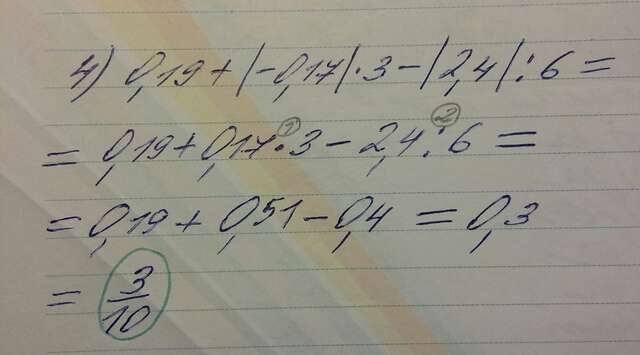 4) 0,19+|-0,17|·3-|2,4|:6=
= 0,19+0,17·3-2,4:6=
1 2
= 0,19+0,51-0,4=0,3
= 3/10